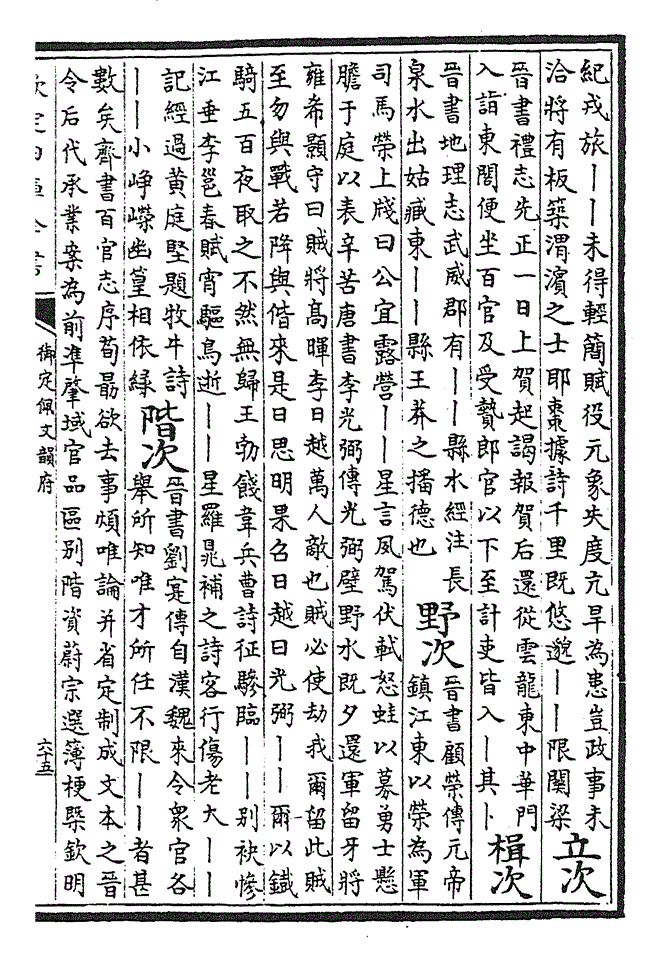 紀戎旅｜｜未得輕簡賦役元象失度亢旱為患豈政事未
洽將有板築渭濱之士耶棗據詩千里既悠邈｜｜限關梁
立次
晉書禮志先正一日上賀起謁報賀后還從雲龍東中華門
入詣東閤便坐百官及受贄郎官以下至計吏皆入｜其｜
楫次
晉書地理志武威郡有｜｜縣水經注長
泉水出姑臧東｜｜縣王莽之播德也
野次
晉書顧榮傳元帝
鎮江東以榮為軍
司馬榮上牋曰公宜露營｜｜星言夙駕伏軾怒蛙以募勇士懸
膽于庭以表辛苦唐書李光弼傳光弼壁野水既夕還軍留牙將
雍希顥守曰賊將高暉李日越萬人敵也賊必使劫我爾留此賊
至勿與戰若降與偕來是日思明果召日越曰光弼｜｜爾以鐵
騎五百夜取之不然無歸王勃餞韋兵曹詩征驂臨｜｜别袂慘
江垂李邕春賦宵驅鳥逝｜｜星羅晁補之詩客行傷老大｜｜
記經過黃庭堅題牧牛詩
｜｜小崢嶸幽篁相依綠
階次
晉書劉寔傳自漢魏來令衆官各
舉所知唯才所任不限｜｜者甚
數矣齊書百官志序荀勗欲去事煩唯論并省定制成文本之晉
令后代承業案為前準肇域官品區别階資蔚宗選簿梗槩欽明
欽定四庫全書
御定佩文韻府
六十五